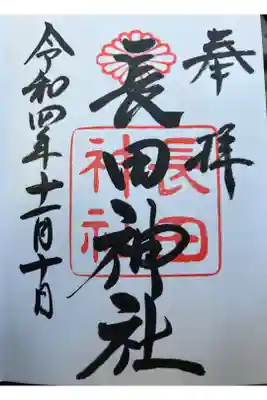 奉拝
長田神社
長田
神社
令和四年十一月十日